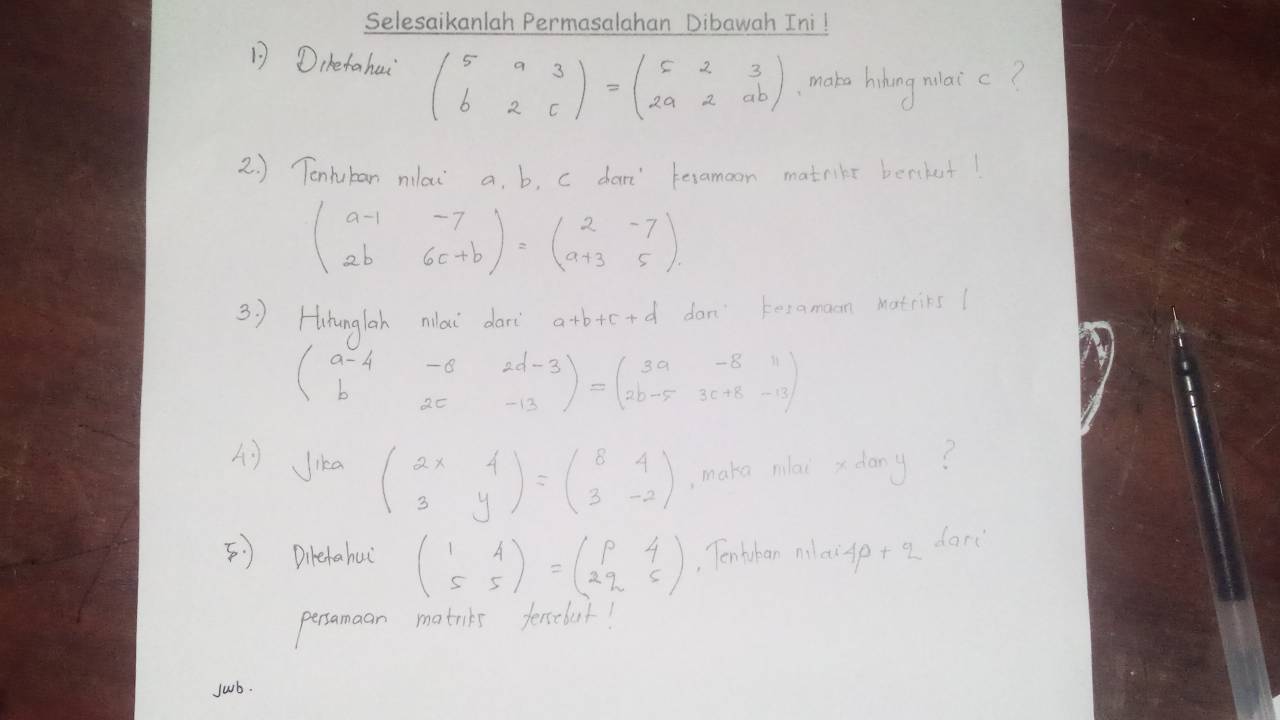 Selesaikanlah Permasalahan Dibawah Ini !
1.) Diketahui ( 5 a 3 ) = ( 5 2 3 ), maka hitung nilai c ?
( b 2 c ) ( 2a 2 ab )
2.) Tentukan nilai a, b, c dari kesamaan matriks berikut !
( a-1 -7 ) = ( 2 -7 )
( 2b 6c+b ) ( a+3 5 ).
3.) Hitunglah nilai dari a+b+c+d dari kesamaan matriks !
( a-4 -8 2d-3 ) = ( 3a -8 11 )
( b 2c -13 ) ( 2b-5 3c+8 -13 )
4.) Jika ( 2x 4 ) = ( 8 4 ), maka nilai x dan y ?
( 3 y ) ( 3 -2 )
5.) Diketahui ( 1 4 ) = ( p 4 ), Tentukan nilai 4p + q dari
( 5 5 ) ( 2q 5 )
persamaan matriks tersebut !
Jwb.